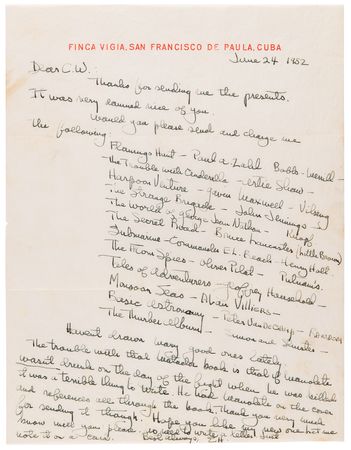 FINCA VIGIA, SAN FRANCISCO DE PAULA, CUBA
June 24 1952
Dear C.W.:
Thanks for sending me the presents.
It was very damned nice of you.
Would you please send and charge me
the following:
Flamingo Hunt - Paul A Zahl Bobbs-Merrill -
The Trouble with Cinderella - Artie Shaw -
Harpoon Venture - Gavin Maxwell - Viking
The Strange Brigade - John Jennings
The World of George Jean Nathan - Knopf
The Secret Road - Bruce Lancaster (Little Brown)
Submarine - Commander E.L. Beach - Henry Holt
The Atom Spies - Oliver Pilat - Putnam's
Tales of Adventurers - Geoffrey Household -
Monsoon Seas - Alan Villiers
Basic Astronomy - Peter Van de Kamp - Random
The Thurber Album - Simon and Schuster -
Haven't drawn many good ones lately.
The trouble with that matador book is that if Manolete
wasn't drunk on the day of the fight when he was killed
it was a terrible thing to write. He had Manolete on the cover
and references all through the book. Thank you very much
for sending it though. Hope you like my new one. Let me
know will you please. No need to write a letter. Just
note it on a card.
Best always, E.H.